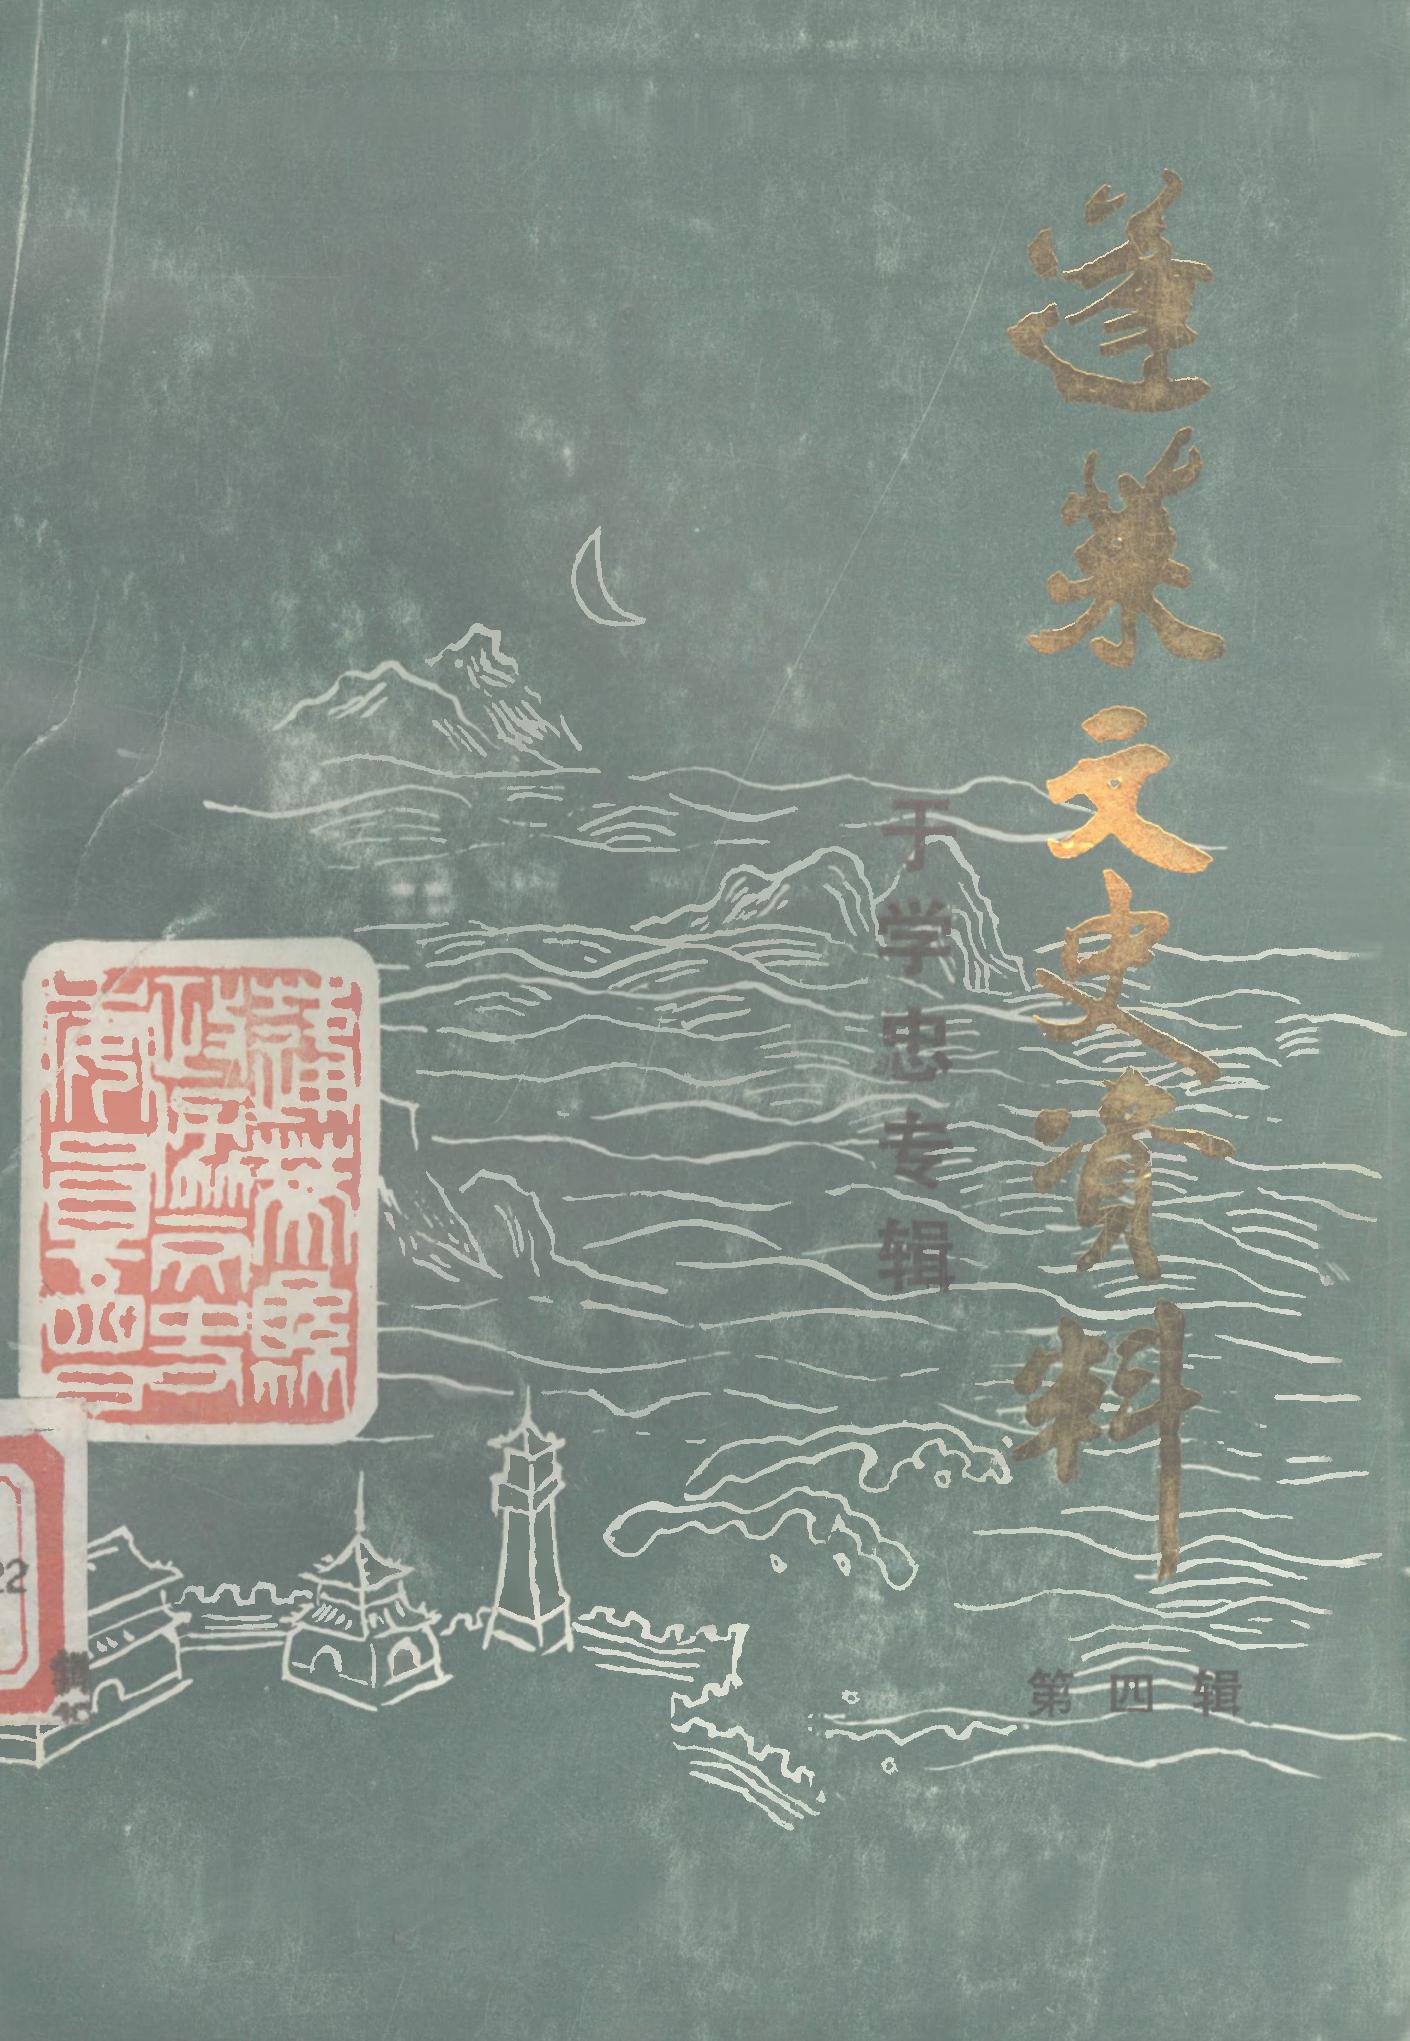 蓬莱文史資料
于学忠专辑
第四辑
22